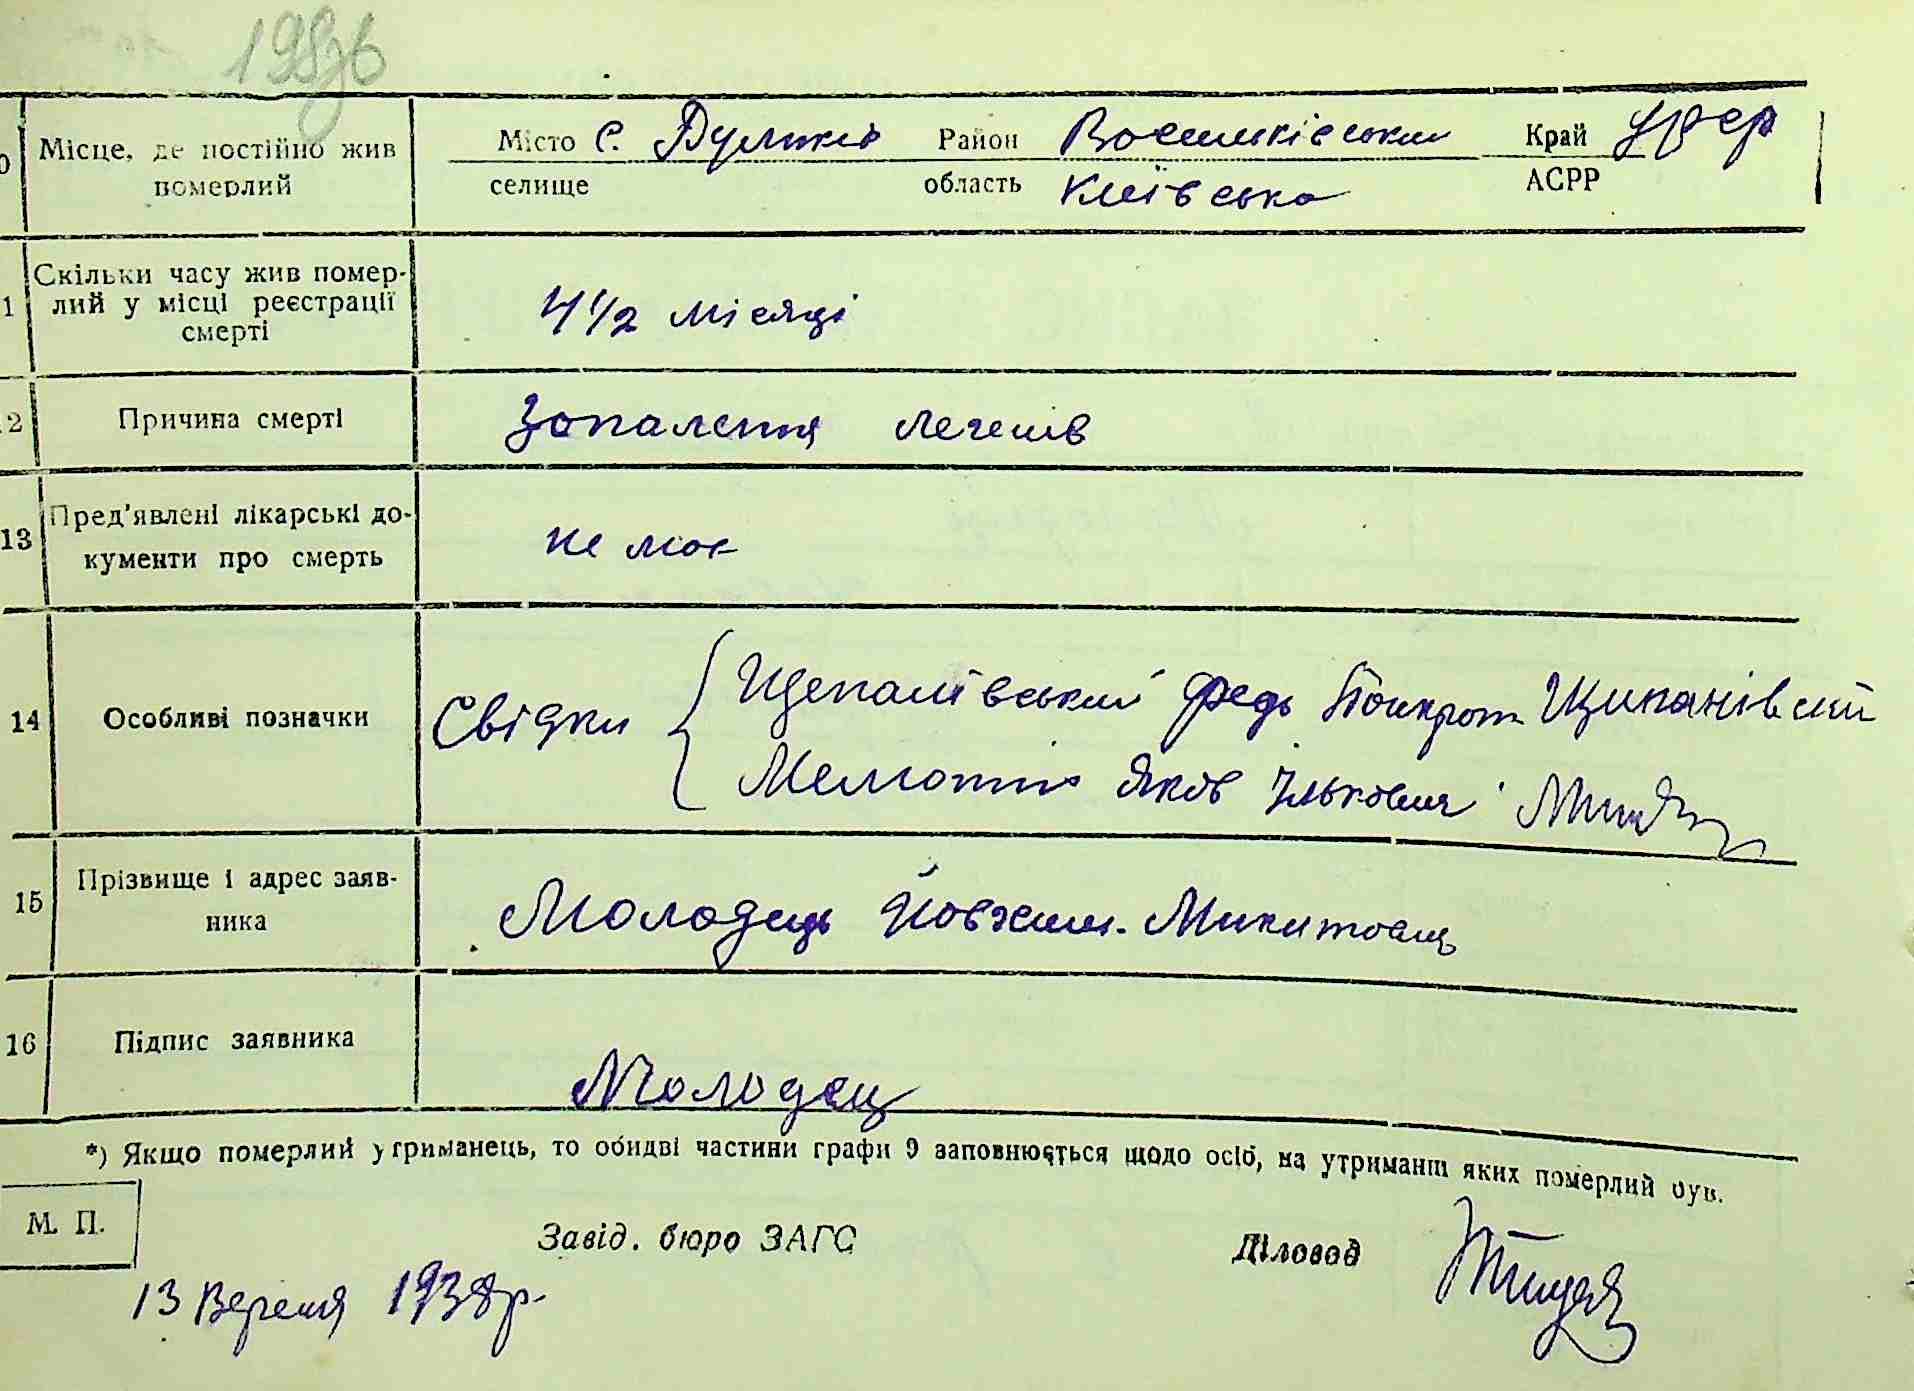 Місце, де постійно жив померлий
Місто с. Дуликів Район Васильківський Край УРСР
селище область Київська АСРР
1 Скільки часу жив помер-
лий у місці реєстрації
смерті
4 1/2 місяці
2 Причина смерті Запалення легенів
13 Пред'явлені лікарські до-
кументи про смерть
не має
14 Особливі позначки Свідки
Щепанівський Федь Панкрат Щипанівский
Яків Ількович
15 Прізвище і адрес заяв-
ника
Молодець Йовхим. Микитович
16 Підпис заявника
Молодец
*) Якщо померлий утриманець, то обидві частини графи 9 заповнюється щодо осіб, на утриманні яких померлий був.
М. П.
Завід. бюро ЗАГС Діловод
13 Вересня 1938 р.